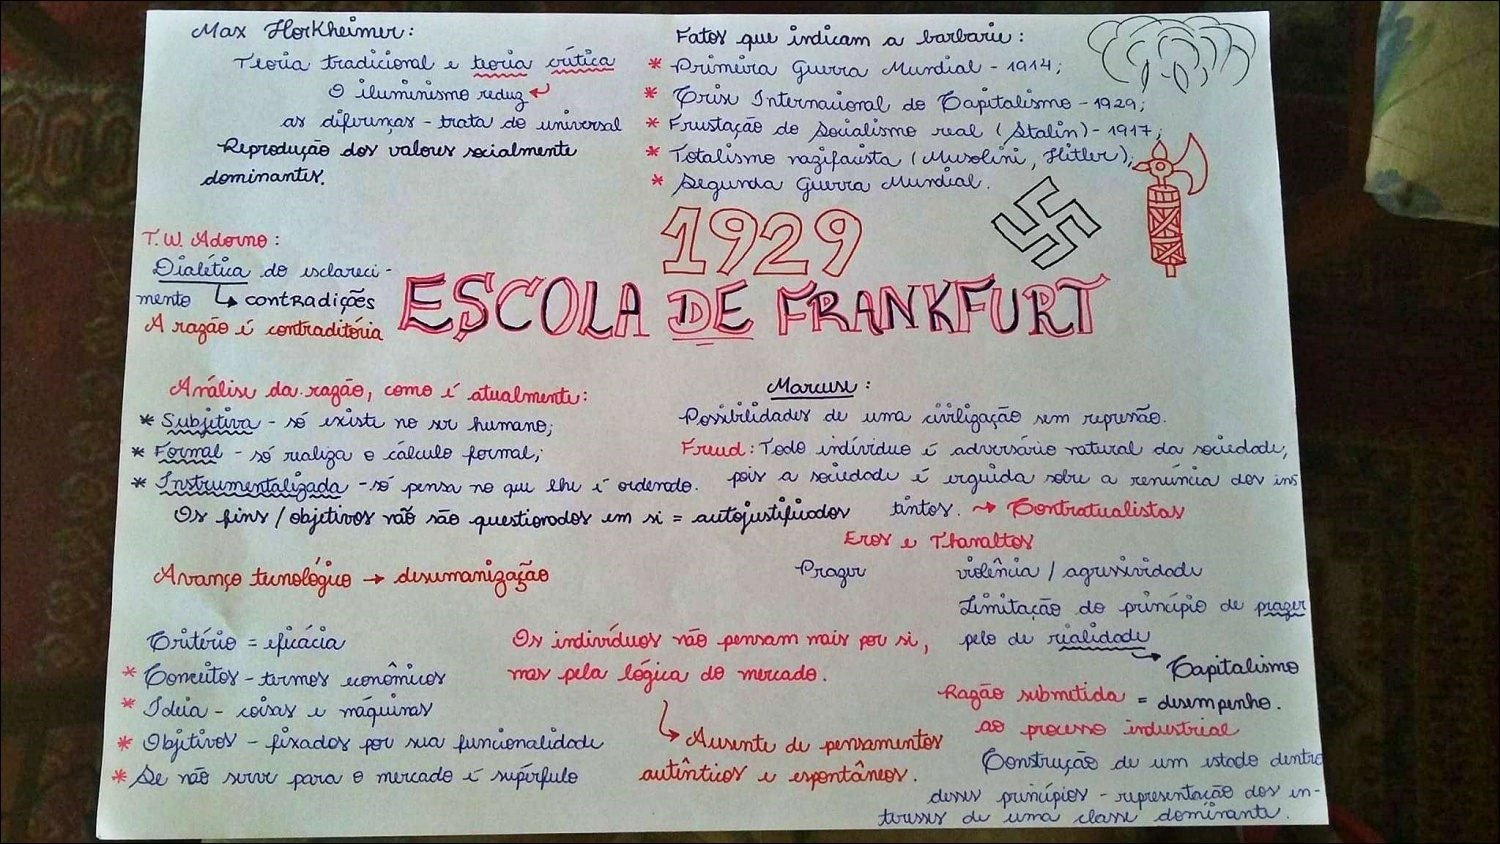 Max Horkheimer:
Teoria tradicional e teoria crítica
O iluminismo reduz
as diferenças - trata do universal
Reprodução dos valores socialmente
dominantes.
Fatos que indicam a barbarie:
* Primeira Guerra Mundial - 1914;
* Crise Internacional do Capitalismo - 1929;
* Frustação do Socialismo real (Stalin) - 1917;
* Totalismo nazifacista (Musolini, Hitler);
* Segunda Guerra Mundial.
T. W. Adorno:
Dialética do esclareci-
mento ↳ contradições
A razão é contraditória
1929
ESCOLA DE FRANKFURT
Análise da razão, como é atualmente:
* Subjetiva - só existe no ser humano;
* Formal - só realiza o cálculo formal;
* Instrumentalizada - só pensa no que lhe é ordenado.
Os fins/objetivos não são questionados em si = autojustificados
Marcuse:
Possibilidades de uma civilização sem represão.
Freud: Todo indivíduo é adversário natural da sociedade,
pois a sociedade é erguida sobre a renúncia dos ins
tintos. → Contratualistas
Eros e Thanaltos
Prazer violência / agressividade
Limitação do princípio de prazer
pelo de realidade
→ Capitalismo
Razão submetida = desempenho.
ao processo industrial
Construção de um estado dentro
desses princípios - representação dos in-
teresses de uma classe dominante.
Avanço tecnológico → desumanização
Critério = eficácia
* Conceitos - termos econômicos
* Ideia - coisas e máquinas
* Objetivos - fixados por sua funcionalidade
* Se não serve para o mercado é supérfulo
Os indivíduos não pensam mais por si,
mas pela lógica do mercado.
↳ Ausente de pensamentos
autênticos e espontâneos.